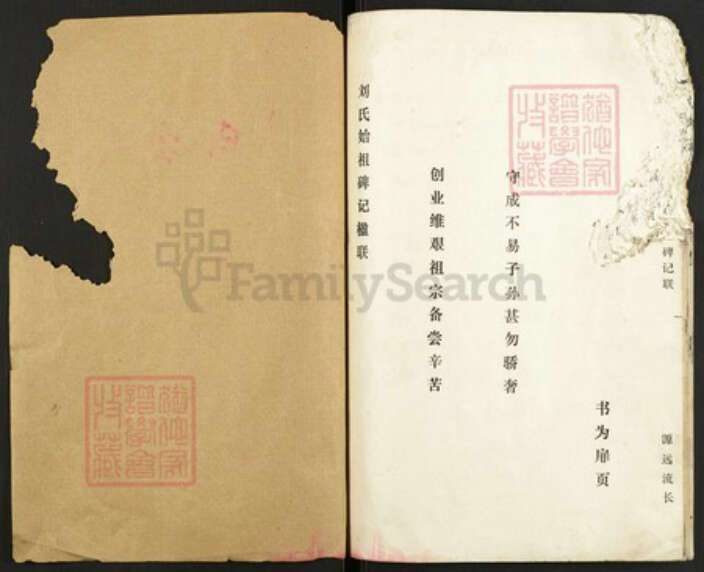 刘氏始祖碑记楹联
创业维艰祖宗备尝辛苦
守成不易子孙甚勿骄奢
书为扉页
碑记联
源远流长
猶他家
譜學會
特藏
猶他家
譜學會
特藏
FamilySearch